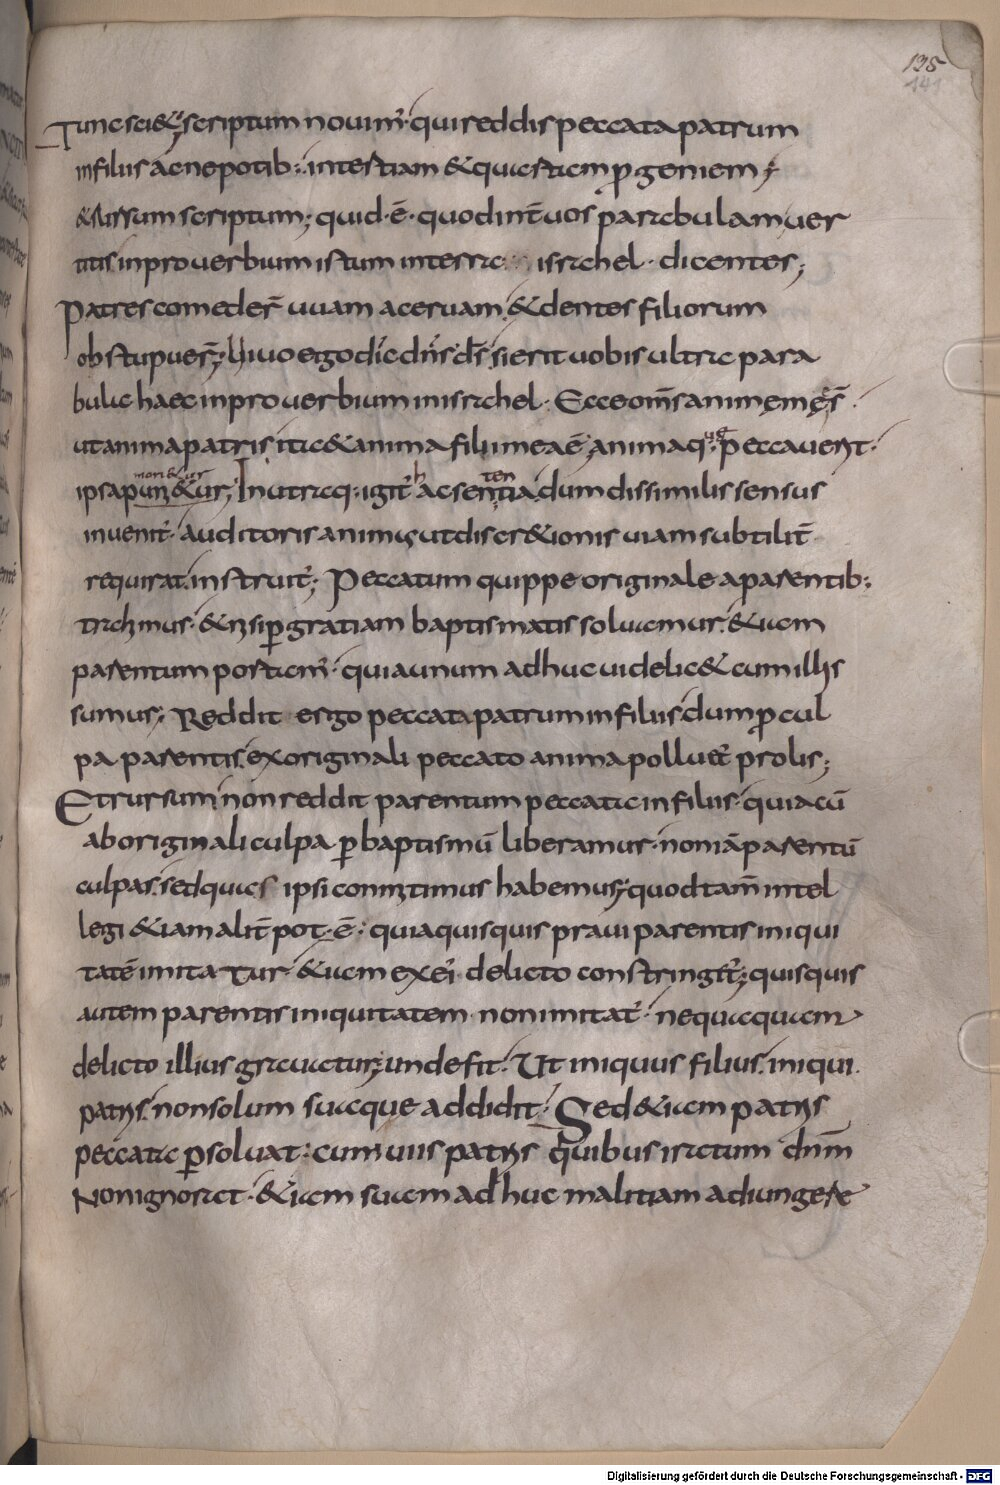 135
141
Tunc sci&; scriptum novim̄· qui reddis peccata patrum
in filiis ac nepotib:· in tertiam & quartam p̄geniem;
& rursum scriptum; quid·ē· quod int̄ vos parabulam ver
titis in proverbium istum in terra israhel· dicentes;
Patres comeder̄ uvam acervam & dentes filiorum
obstupuer̄; Vivo ego dic̄ dn̄s d̄s si erit vobis ultra para
bula haec in proverbium in israhel· Ecce om̄s animę męę s̄·
ut anima patris ita & anima filii mea ē; anima q·ue peccaverit·
mori&ur
ipsa puni&ur; In utraq· igit̄ hac sententia dum dissimilis sensus
invenit̄· auditoris animus ut discr&ionis viam subtilit̄
requirat· instruit̄; Peccatum quippe originale a parentib:
trahimus· & nisi p̄ gratiam baptismatis solvamur· &iam
parentum portam̄· quia unum adhuc videlic& cum illis
sumus; Reddit ergo peccata patrum in filiis· dum p̄ cul
pa parentis· ex originali peccato anima polluit̄ prolis;
Et rursum non reddit parentum peccata in filiis· quia cū
ab originali culpa p̄ baptismū liberamur· non iā parentū
culpas· sed quas ipsi commitimus habemus; quod tam̄ intel
legi &iam alit̄ pot·ē· quia quisquis pravi parentis iniqui
tatē imitatur· &iam ex ei delicto constringit̄; quisquis
autem parentis iniquitatem· non imitat̄· nequaquam
delicto illius gravatur; unde fit· Ut iniquus filius· iniqui
patris· non solum suaque addidit· Sed &iam patris
peccata p̄solvat· cum viis patris quibus iratum dnm̄
Non ignorat· &iam suam adhuc malitiam adiungere
Digitalisierung gefördert durch die Deutsche Forschungsgemeinschaft - DFG